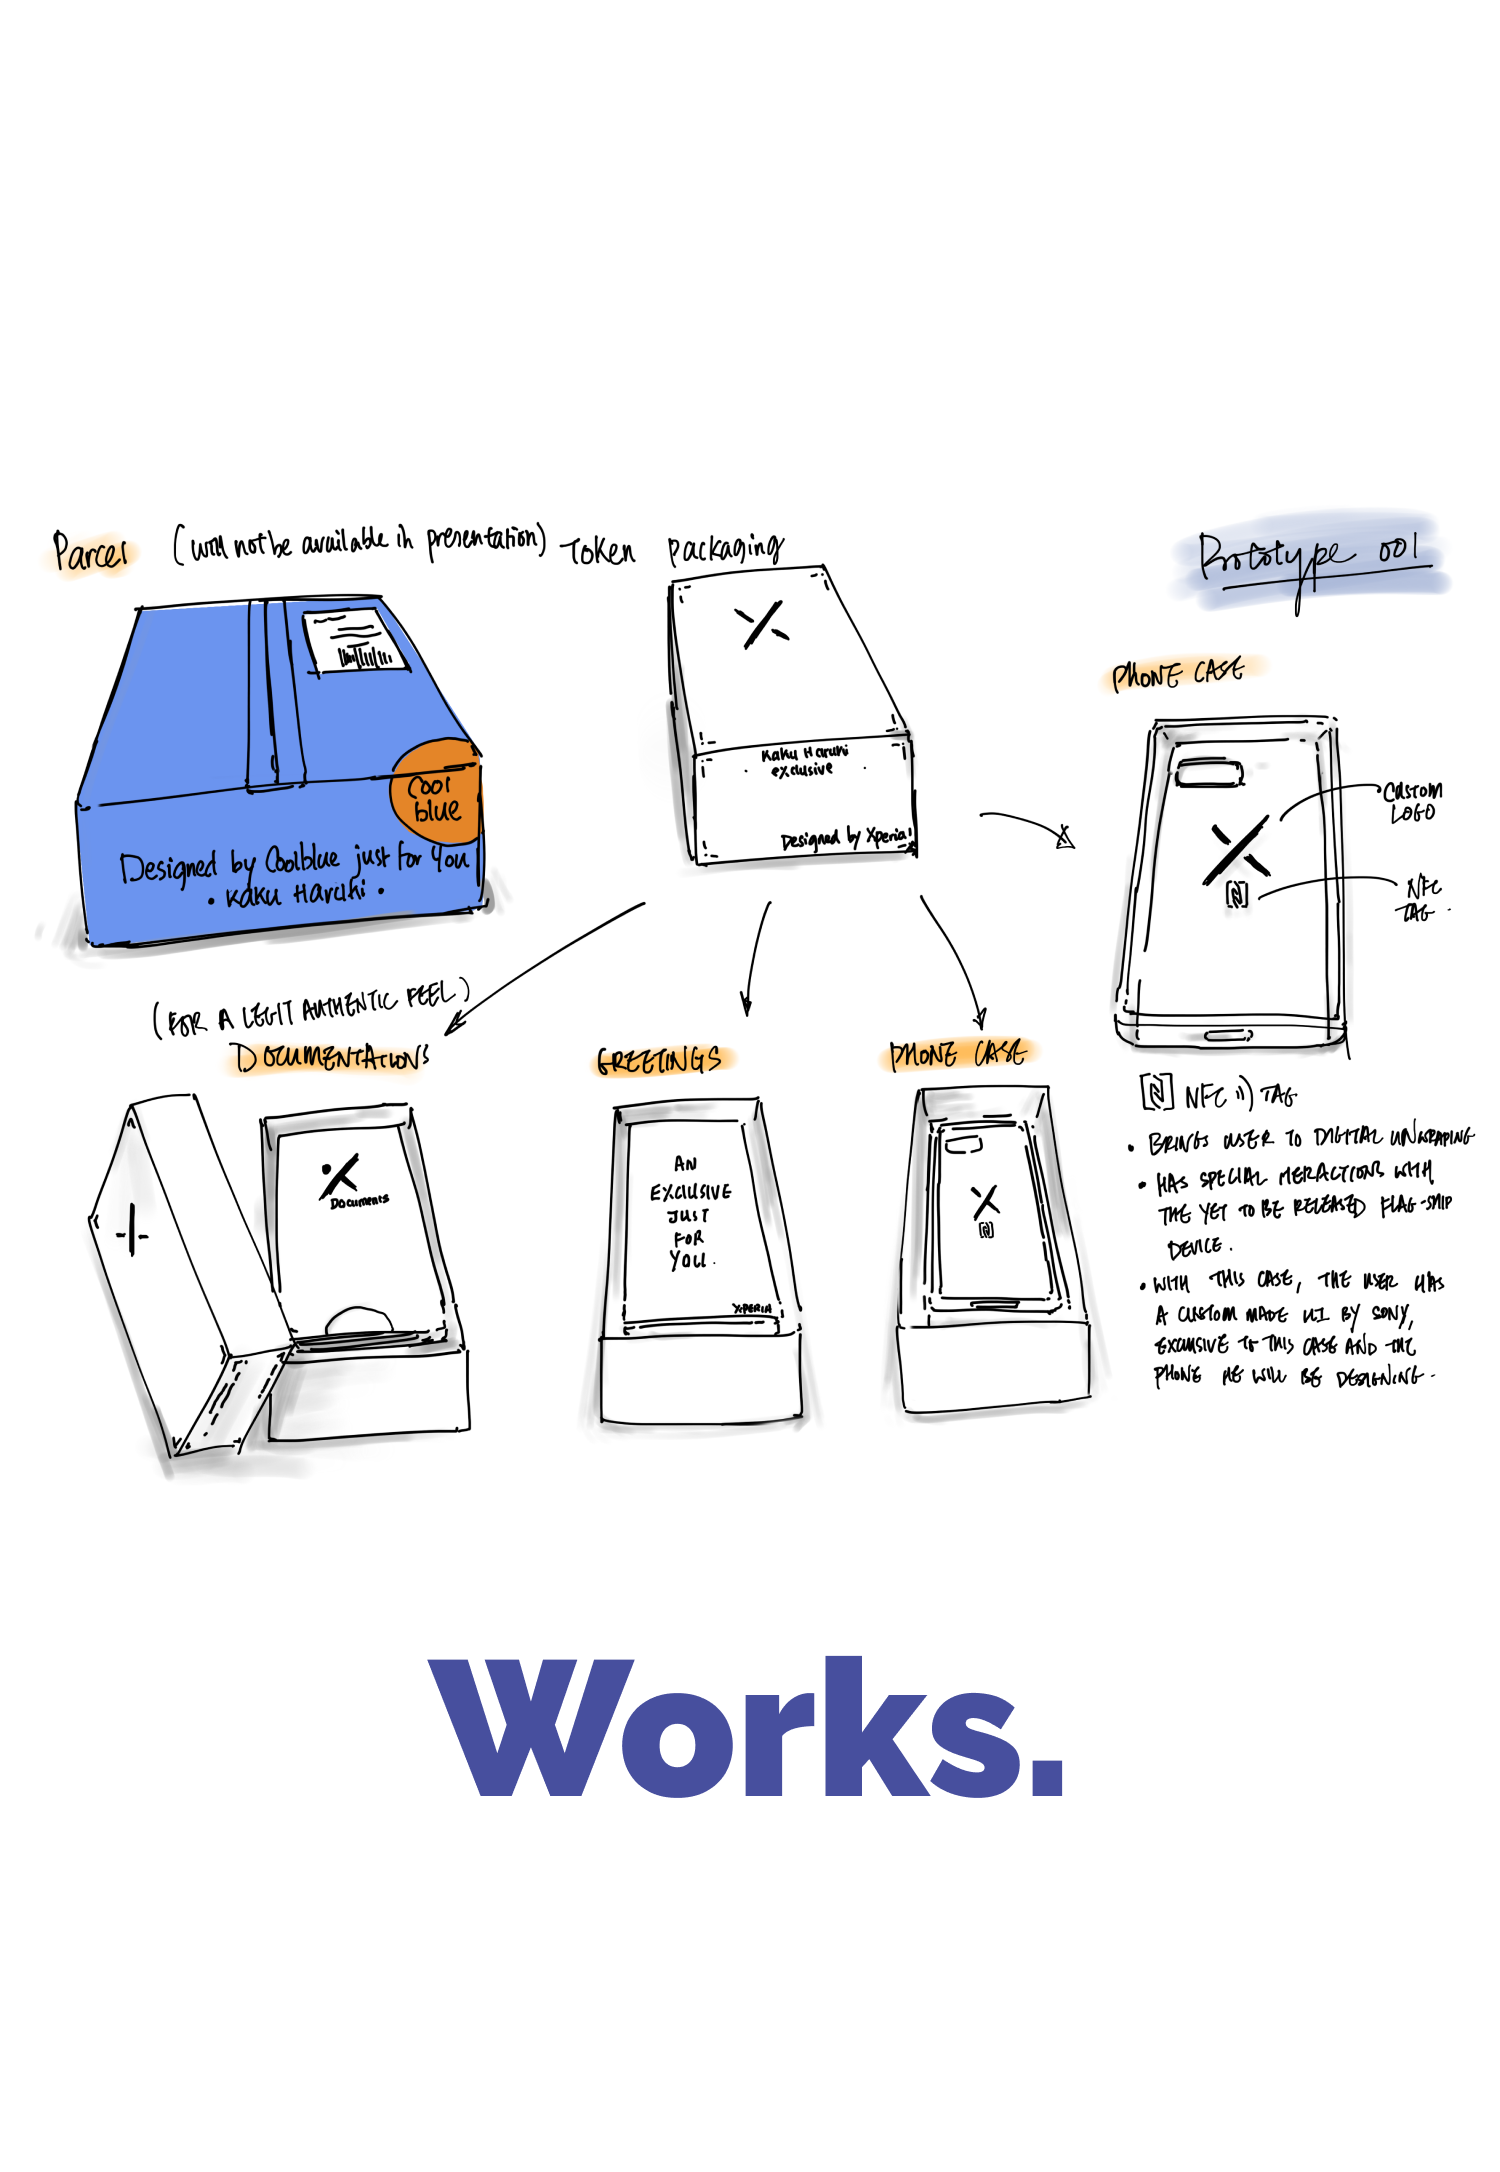 Parcel (will not be available in presentation)
Token packaging
Prototype 001
Cool
blue
Designed by Coolblue just for You
• Kaku Haruki •
Kaku Haruki
exclusive
Designed by Xperia
PHONE CASE
CUSTOM
LOGO
NFC
TAG
(FOR A LEGIT AUTHENTIC FEEL)
DOCUMENTATIONS
Documents
GREETINGS
AN
EXCLUSIVE
JUST
FOR
YOU.
XPERIA
PHONE CASE
NFC TAG
• BRINGS USER TO DIGITAL UNWRAPING
• HAS SPECIAL INERACTIONS WITH
THE YET TO BE RELEASED FLAG-SHIP
DEVICE.
• WITH THIS CASE, THE USER HAS
A CUSTOM MADE UI BY SONY,
EXCLUSIVE TO THIS CASE AND THE
PHONE HE WILL BE DESIGNING.
Works.